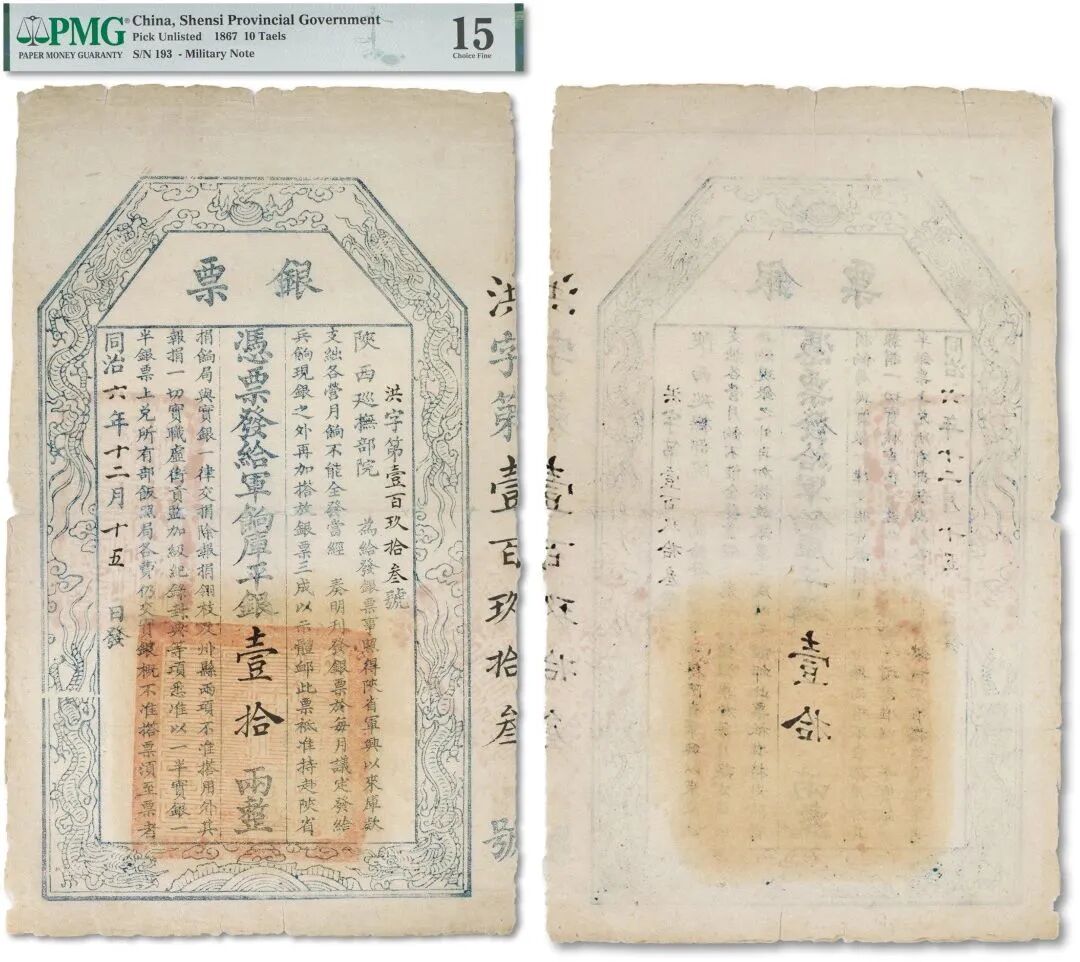 PMG
PAPER MONEY GUARANTY
China, Shensi Provincial Government
Pick Unlisted 1867 10 Taels
S/N 193 - Military Note
15
Choice Fine
銀票
洪字第壹百玖拾叁號
洪字第壹百玖拾叁號
陝西巡撫部院 為給發銀票事照得陝省軍興以來庫款
支絀各營月餉不能全發當經 奏明刊發銀票於每月議定發給
兵餉現銀之外再加搭放銀票三成以示體卹此票祗准持赴陝省
憑票發給軍餉庫平銀壹拾兩整
捐餉局與實銀一律交捐除報捐翎枝及州縣兩項不准搭用外其
報捐一切實職虛銜貢監加級紀錄封典等項悉准以一半實銀一
半銀票上兌所有部飯照局各費仍交實銀概不准搭票須至票者
同治六年十二月十五日發
壹拾